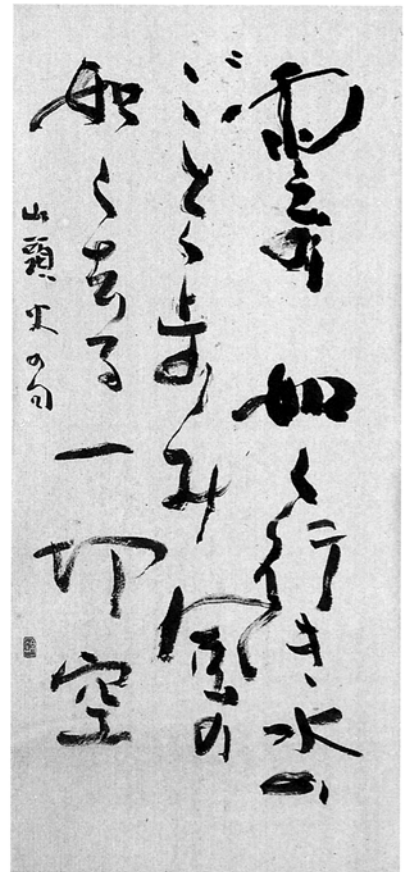 雲の如く行き水の
ごとく歩み風の
如く去る一切空
山頭火の句